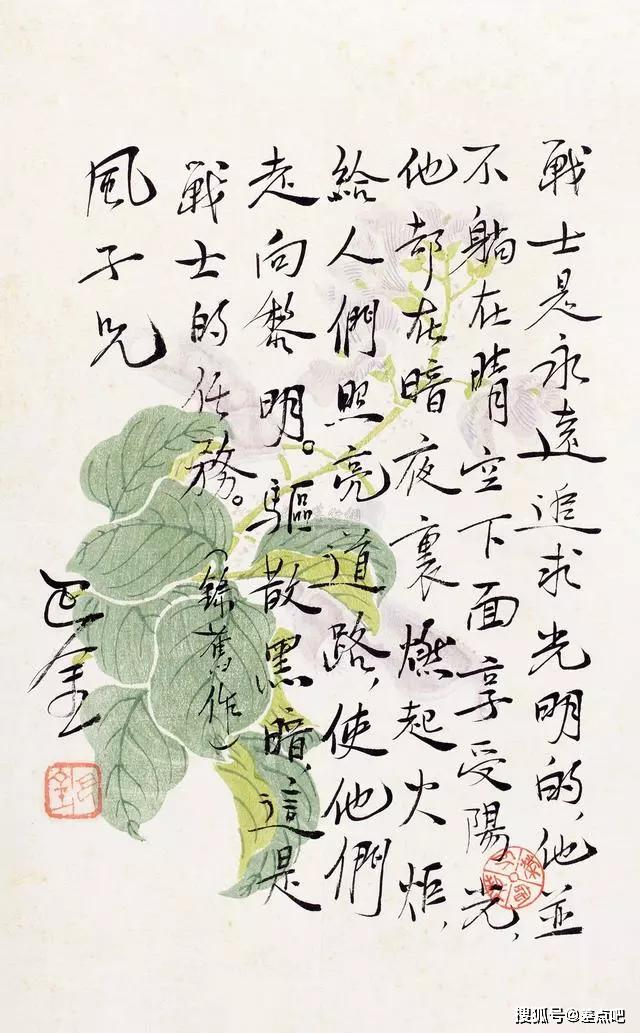 戰士是永遠追求光明的，他並
不躺在晴空下面享受陽光，
他却在暗夜裏燃起火炬，
給人們照亮道路，使他們
走向黎明。驅散黑暗，這是
戰士的任務。（錄舊作）
風子兄
巴金
巴金
搜狐号@差点吧